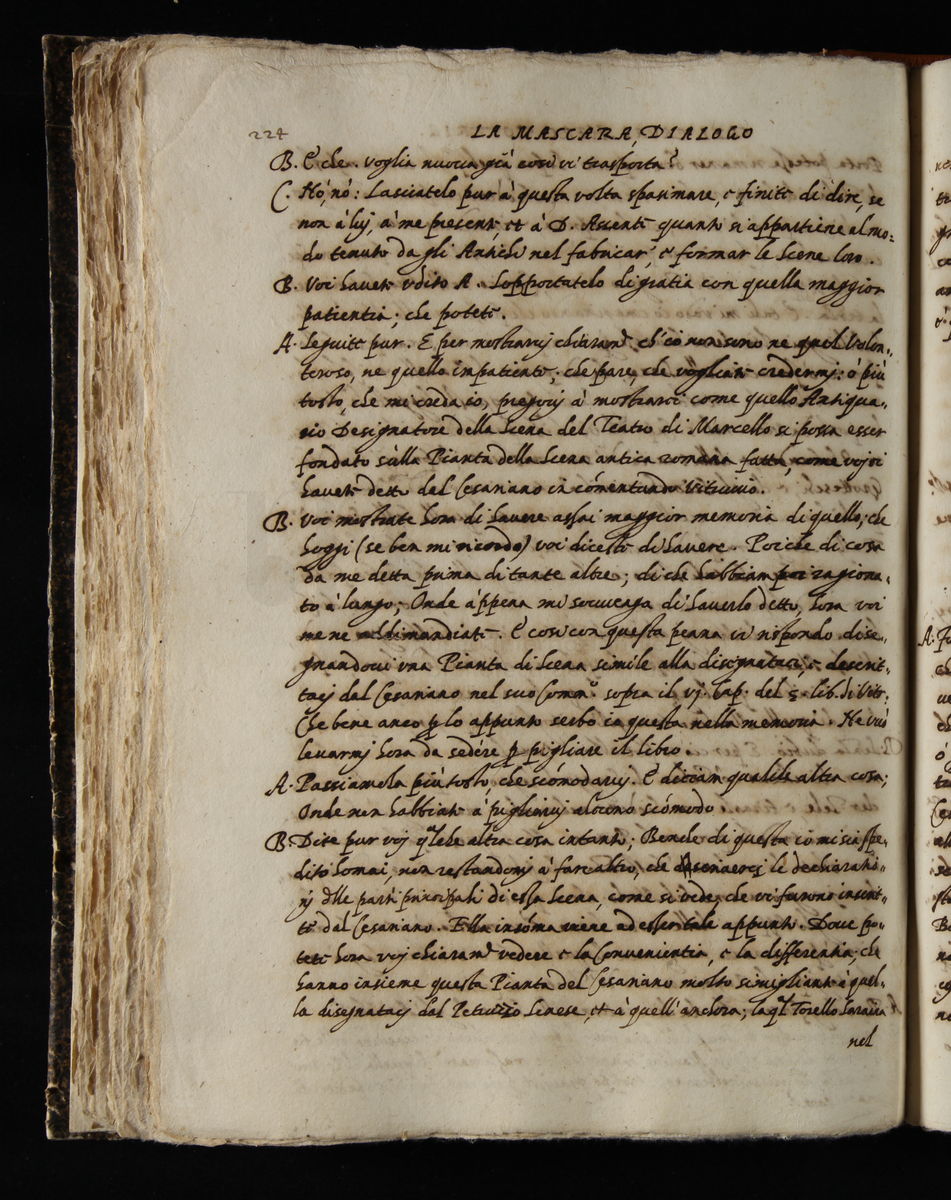 224 LA MASCARA, DIALOGO
B. E che voglia nuova già così vi trasporta?
C. Nò, nò: Lasciatelo pur à questa volta spasimare, e finite di dire, se
non à lui, à me presente, et à D. Assente quanto si appartiene al mo=
do tenuto dagli Antichi nel fabricar, e formar le Scene loro.
B. Voi havete udito A. Sopportatelo di gratia con quella maggior
patientia, che potete.
A. Seguite pur. E per mostrarvj chiaramẽ ch'io non sono ne quel Volon=
teroso, ne quello impatiente, che pare, che vogliate credermj: ò più
tosto, che mi creda io, pregovj à mostrarci come quello Antiqua=
rio Designatore della Scena del Teatro di Marcello si possa esser
fondato sùlla Pianta della Scena antica romana fatta, come voj ci
havete detto dal Cesariano in cõmentando Vitruvio.
B. Voi mostrate hora di havere assai maggior memoria di quello, che
hoggi (se ben mi ricordo) voi diceste di havere. Poiche di cosa
da me detta prima di tante altre; di che habbiam poi ragiona=
to à lungo; Onde àppena mi sovvenga di haverlo detto, hora voi
me ne addimandiate. E così con questa penna vi rispondo dise=
gnandovi una Pianta di Scena simile alla disegnatacj, e descrit=
tacj dal Cesariano nel suo Comm.º sopra il vj. Cap. del 5. lib. di Vitr:
Che bene anco ꝑ lo appunto serbo in questa nella memoria. Ne vuò
levarmj hora da sedére ꝑ pigliare il libro.
A. Passiamola più tosto, che scõmodarvj. E dicciam qualche altra cosa;
Onde non habbiate à pigliarvj alcuno scõmodo
B. Dite pur voj q̃lche altra cosa intanto; Benche di questa io mi sia spe=
dito homai, non restandomj à fare altro, che le dechiaratio=
nj d̃lle parti principali di essa Scena, come si vede, che vi furono inserit=
te dal Cesariano. Ella insõma viene ad esser tale appunto. Dove po=
tete hora voj chiaramẽ vedere e la Convenientia, e la differentia, che
hanno insieme questa Pianta del Cesariano molto simigliante à quel=
la disegnatacj dal Petruzzio Senese, et à quell'anchora; la q̃l Torello Saraina
nel